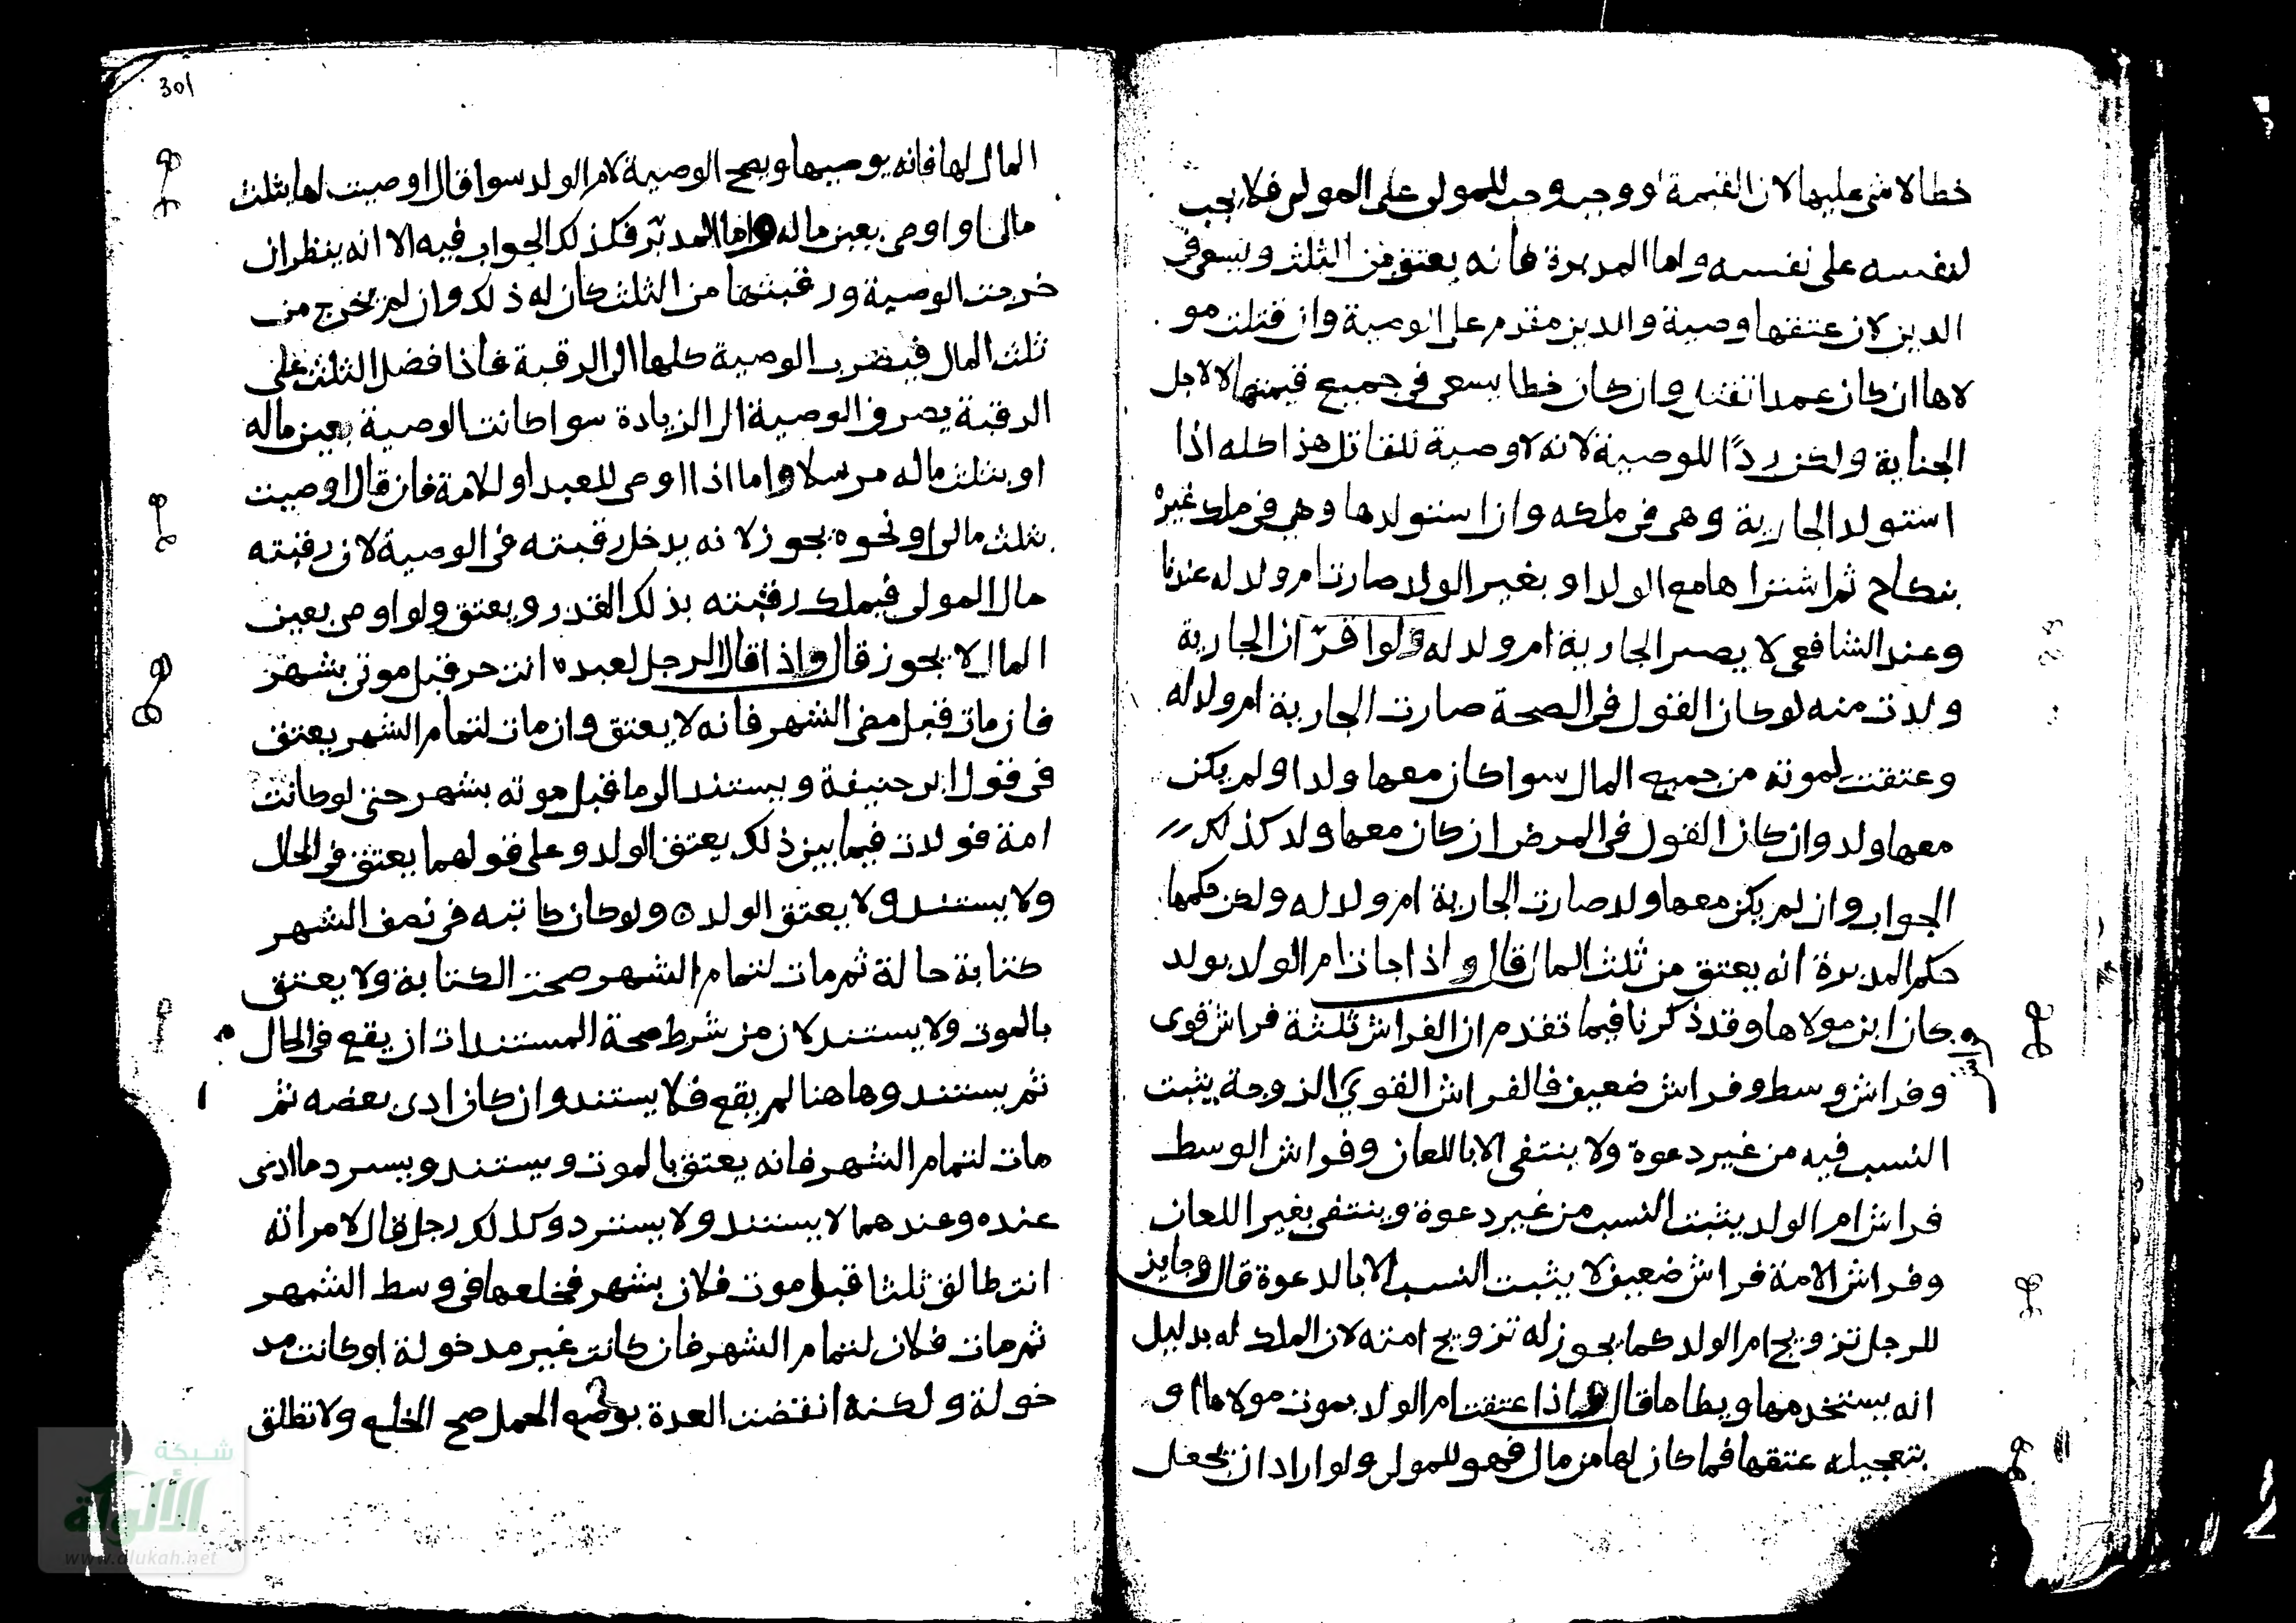 خطا لا شى عليها لان القيمة لو وجب وجب للمولى على المولى فلا يجب
لنفسه على نفسه واما المدبرة فانه يعتق من الثلث ويسعى فى
الدين لان عتقها وصية والدين مقدم على الوصية وان قتلت مو
لاها ان كان عمدا تقتل وان كان خطا يسعى فى جميع قيمتها لا لاجل
الجناية ولكن ردًا للوصية لانه لا وصية للقاتل هذا كله اذا
استولد الجارية وهى فى ملكه وان استولدها وهى فى ملك غيره
بنكاح ثم اشتراها مع الولد او بغير الولد صارت ام ولد له عندنا
وعند الشافعى لا يصير الجارية ام ولد له ولو اقرّ ان الجارية
ولدت منه لو كان القول فى الصحة صارت الجارية ام ولد له
وعتقت لموته من جميع المال سوا كان معها ولد او لم يكن
معها ولد وان كان القول فى المرض ان كان معها ولد كذلك
الجواب وان لم يكن معها ولد صارت الجارية ام ولد له ولكن حكمها
حكم المدبرة انه يعتق من ثلث المال قال و اذا جات ام الولد بولد
وكان ابن مولاها وقد ذكرنا فيما تقدم ان الفراش ثلثة فراش قوى
وفراش وسط وفراش ضعيف فالفراش القوي الزوجة يثبت
النسب فيه من غير دعوة ولا ينتفى الا باللعان وفراش الوسط
فراش ام الولد يثبت النسب من غير دعوة وينتفى بغير اللعان
وفراش الامة فراش ضعيف لا يثبت النسب الا بالدعوة قال وجايز
للرجل تزويج ام الولد كما يجوز له تزويج امته لان الملك له بدليل
انه يستخدمها ويطاها قال واذا عتقت ام الولد بموت مولاها او
بتعجيله عتقها فما كان لها من مال فهو للمولى ولو اراد ان يجعل
301
المال لها فانه يوصيها ويصح الوصية لام الولد سوا قال اوصيت لها بثلث
مالى او اوصى بعين ماله واما المدبّر فكذلك الجواب فيه الا انه ينظر ان
خرجت الوصية ورقبتها من الثلث كان له ذلك وان لم يخرج من
ثلث المال فيضرب الوصية كلها الى الرقبة فاذا فضل الثلث على
الرقبة يصرف الوصية الى الزيادة سوا كانت الوصية بعين ماله
او بثلث ماله مرسلا واما اذا اوصى للعبد او للامة فان قال اوصيت
بثلث مالى او نحوه يجوز لانه يدخل رقبته فى الوصية لان رقبته
مال المولى فيملك رقبته بذلك القدر ويعتق ولو اوصى بعين
المال لا يجوز قال واذا قال الرجل لعبده انت حر قبل موتى بشهر
فان مات قبل مضى الشهر فانه لا يعتق وان مات لتمام الشهر يعتق
فى قول ابى حنيفة ويستند الى ما قبل موته بشهر حتى لو كانت
امة فولدت فيما بين ذلك يعتق الولد وعلى قولهما يعتق فى الحال
ولا يستند ولا يعتق الولد ه ولو كان كاتبه فى نصف الشهر
كتابة حالة ثم مات لتمام الشهر صحت الكتابة ولا يعتق
بالموت ولا يستند لان من شرط صحة المستندات ان يقع فى الحال
ثم يستند وهاهنا لم يقع فلا يستند وان كان ادى بعضه ثم
مات لتمام الشهر فانه يعتق بالموت ويستند ويسترد ما ادى
عنده وعندهما لا يستند ولا يسترد وكذلك رجل قال لامراته
انت طالق ثلثا قبل موت فلان بشهر فخلعها فى وسط الشهر
ثم مات فلان لتمام الشهر فان كانت غير مدخولة او كانت مد
خولة ولكنه انقضت العدة بوضع الحمل صح الخلع ولا تطلق
شبكة
الألوكة
www.alukah.net